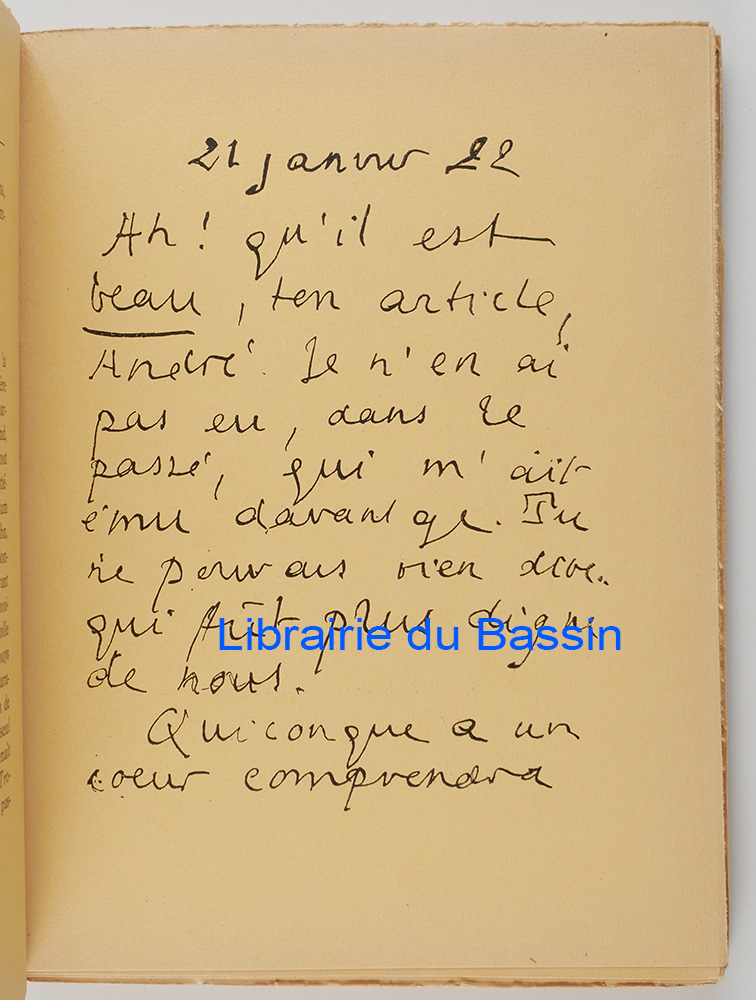 21 janvier 22
Ah ! qu'il est
beau, ton article,
André. Je n'en ai
pas eu, dans le
passé, qui m'ait
ému davantage. Tu
ne pouvais rien dire
qui fût plus digne
Librairie du Bassin
de nous.
Quiconque a un
coeur comprendra